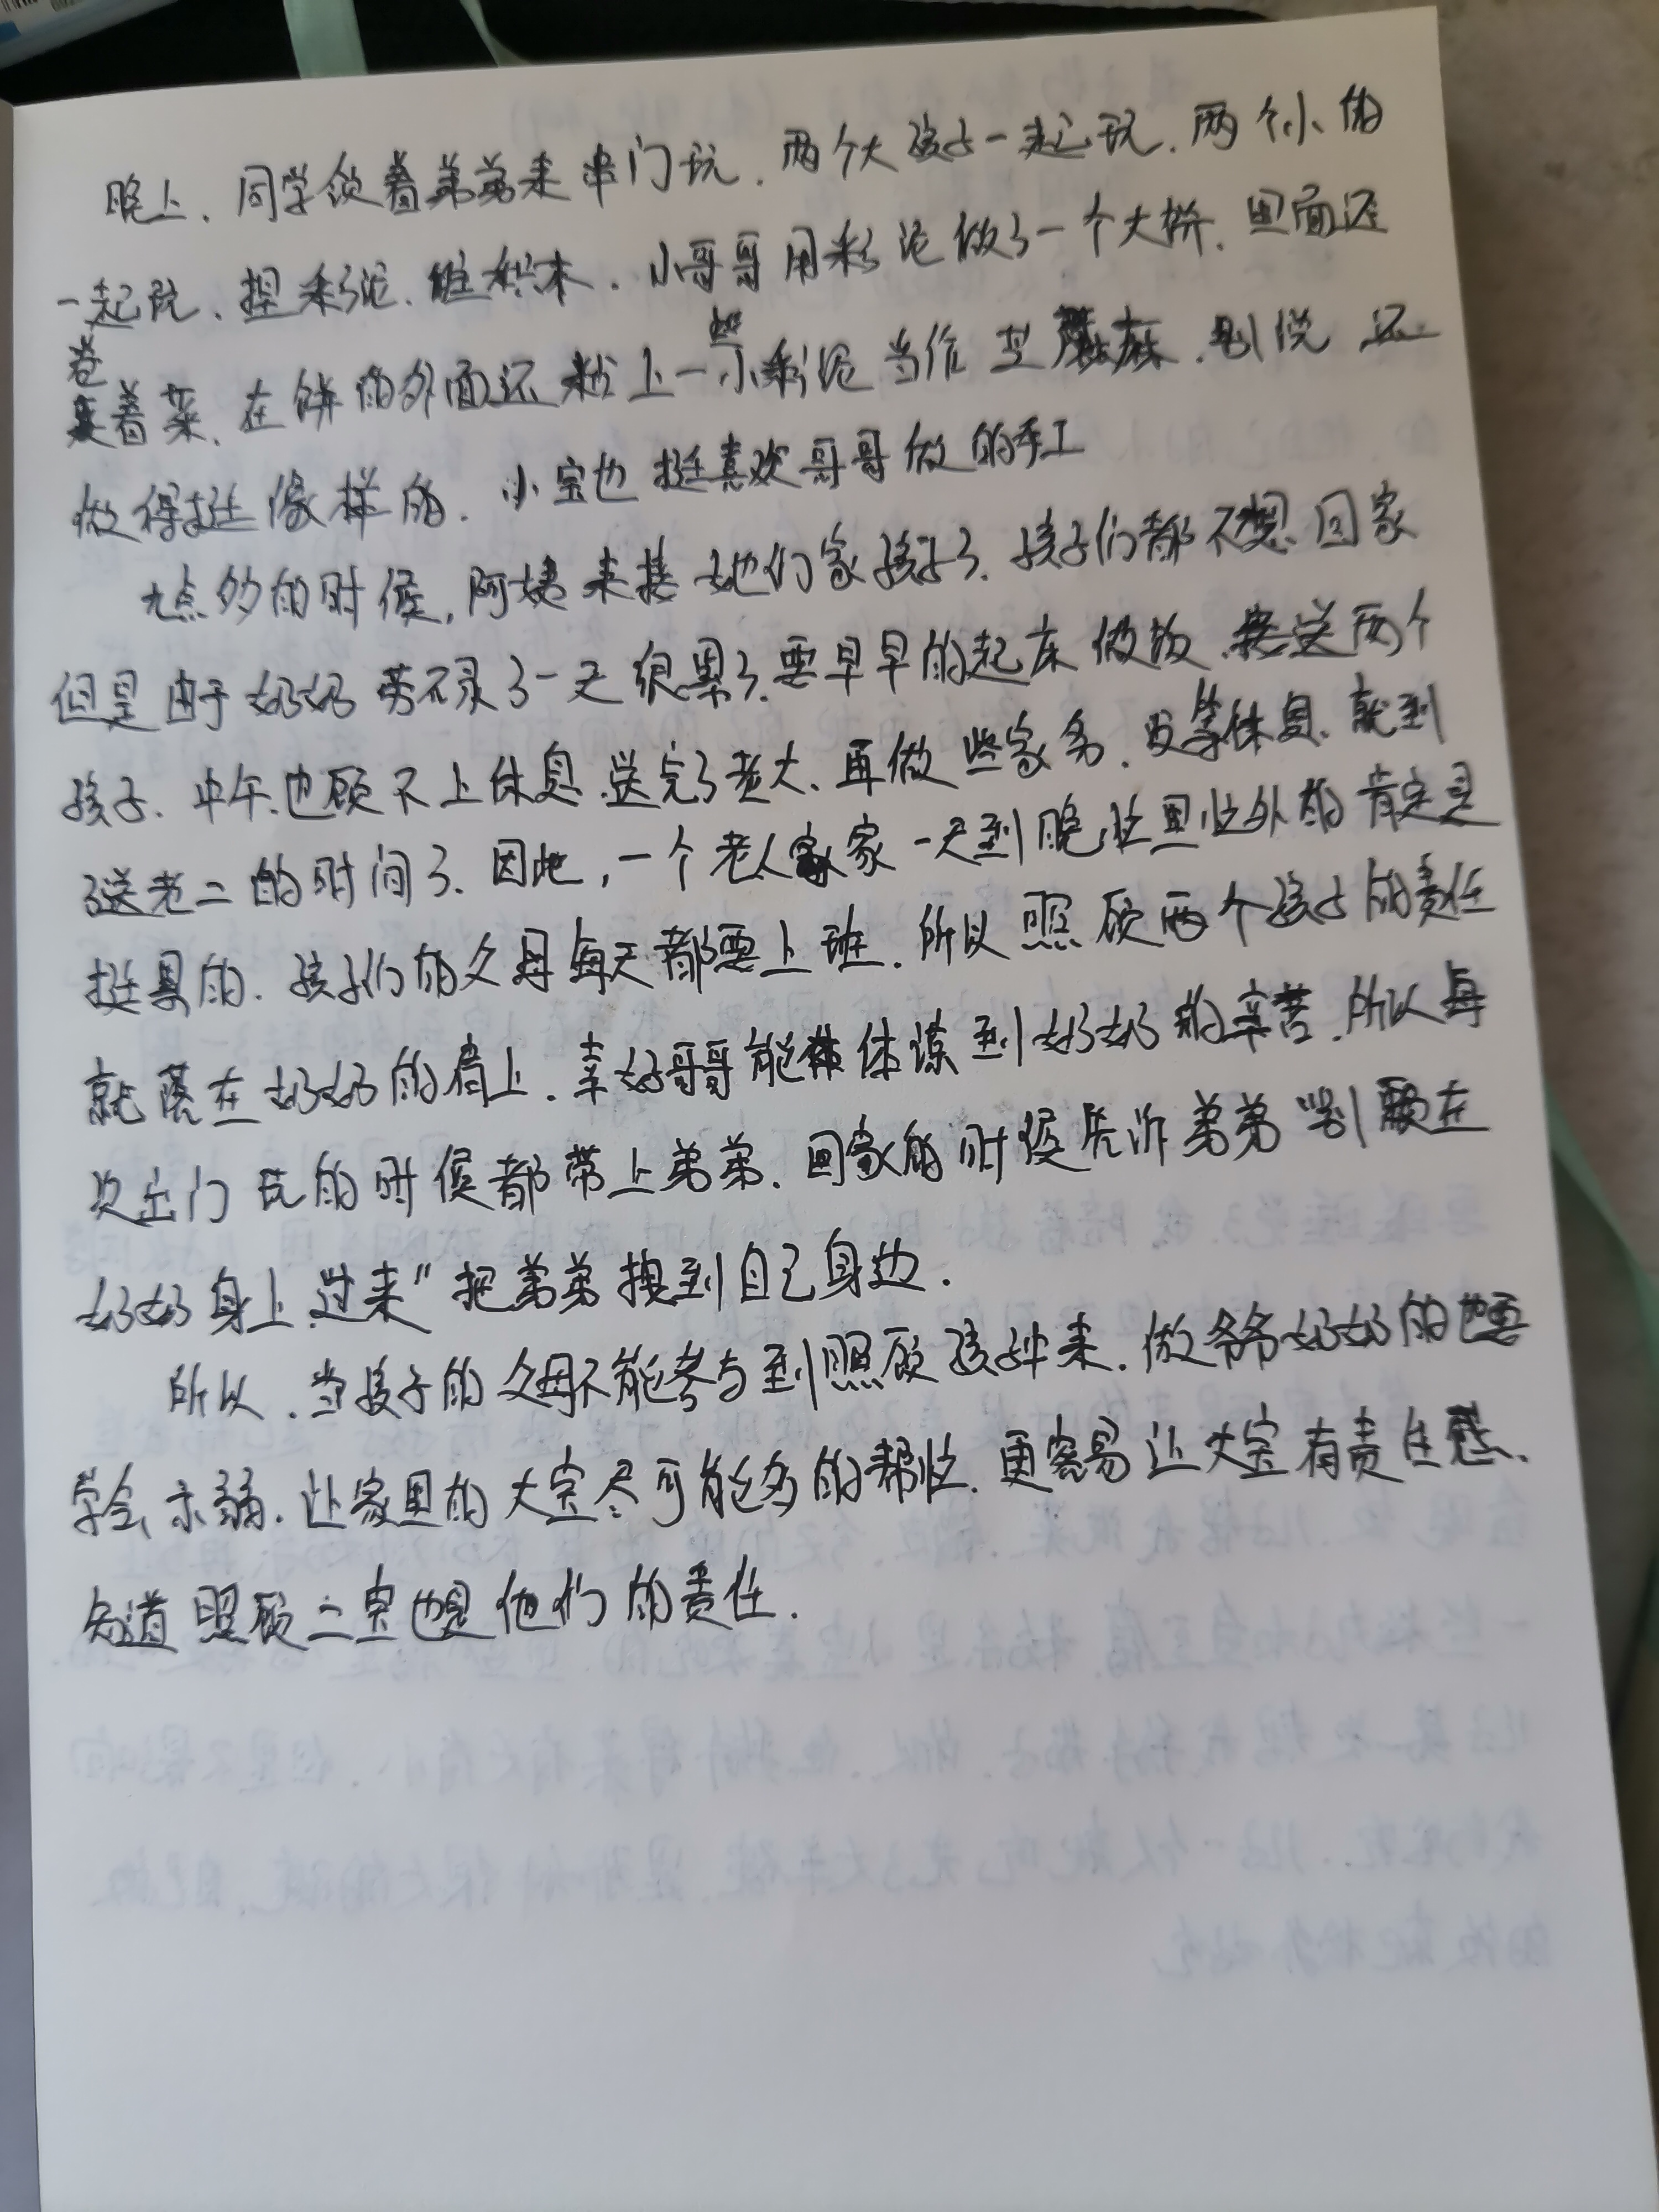 晚上，同学领着弟弟来串门玩，两个大孩子一起玩，两个小的
一起玩，捏彩泥、堆积木，小哥哥用彩泥做了一个大饼，里面还
卷着菜，在饼的外面还粘上一些小彩泥当作芝麻，别说，还
做得挺像样的，小宝也挺喜欢哥哥做的手工
九点多的时候，阿姨来接她们家孩子了，孩子们都不想回家
但是由于奶奶劳碌了一天很累了，要早早的起床做饭，接送两个
孩子，中午也顾不上休息，送完了老大，再做些家务，没等休息，就到
了送老二的时间了，因此，一个老人家一天到晚忙里忙外的肯定是
挺累的，孩子们的父母每天都要上班，所以照顾两个孩子的责任
就落在奶奶的肩上，幸好哥哥能体谅到奶奶的辛苦，所以每
次出门玩的时候都带上弟弟，回家的时候告诉弟弟"别腻在
奶奶身上，过来"把弟弟搜到自己身边.
所以，当孩子的父母不能参与到照顾孩子中来，做爷爷奶奶的也要
学会示弱，让家里的大宝尽可能多的帮忙，更容易让大宝有责任感、
知道照顾二宝也是他们的责任.